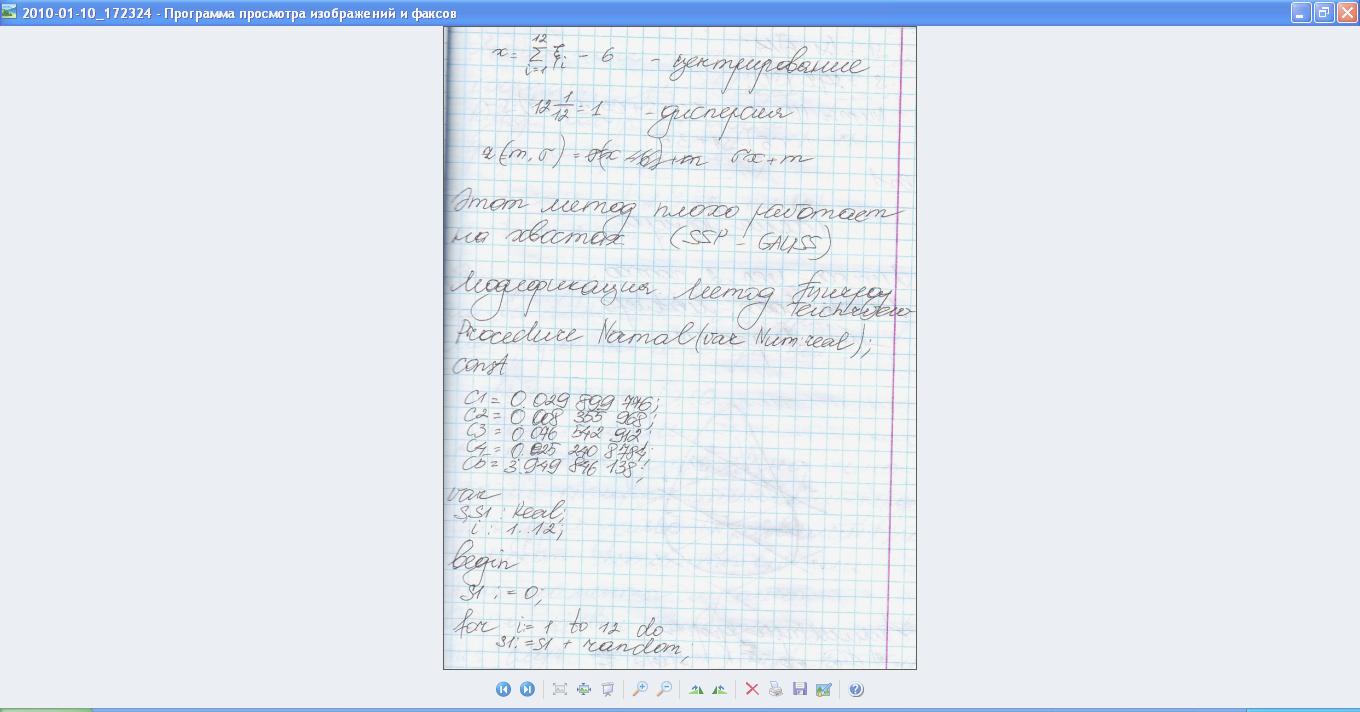 2010-01-10_172324 - Программа просмотра изображений и факсов
x = 12 Σ i=1 ξi - 6 - центрирование
12 1/12 = 1 - дисперсия
(m, σ) = σx + m
Этот метод плохо работает
на хвостах (SSP - GAUSS)
Модификация метод
Procedure Normal (var Num: real);
const
C1 = 0.029 899 776;
C2 = 0.008 355 968;
C3 = 0.076 542 912;
C4 = 0.025 240 8784;
C5 = 3.949 846 138;
var
S,S1 : Real;
i : 1..12;
begin
S1 := 0;
for i= 1 to 12 do
S1:=S1 + random;